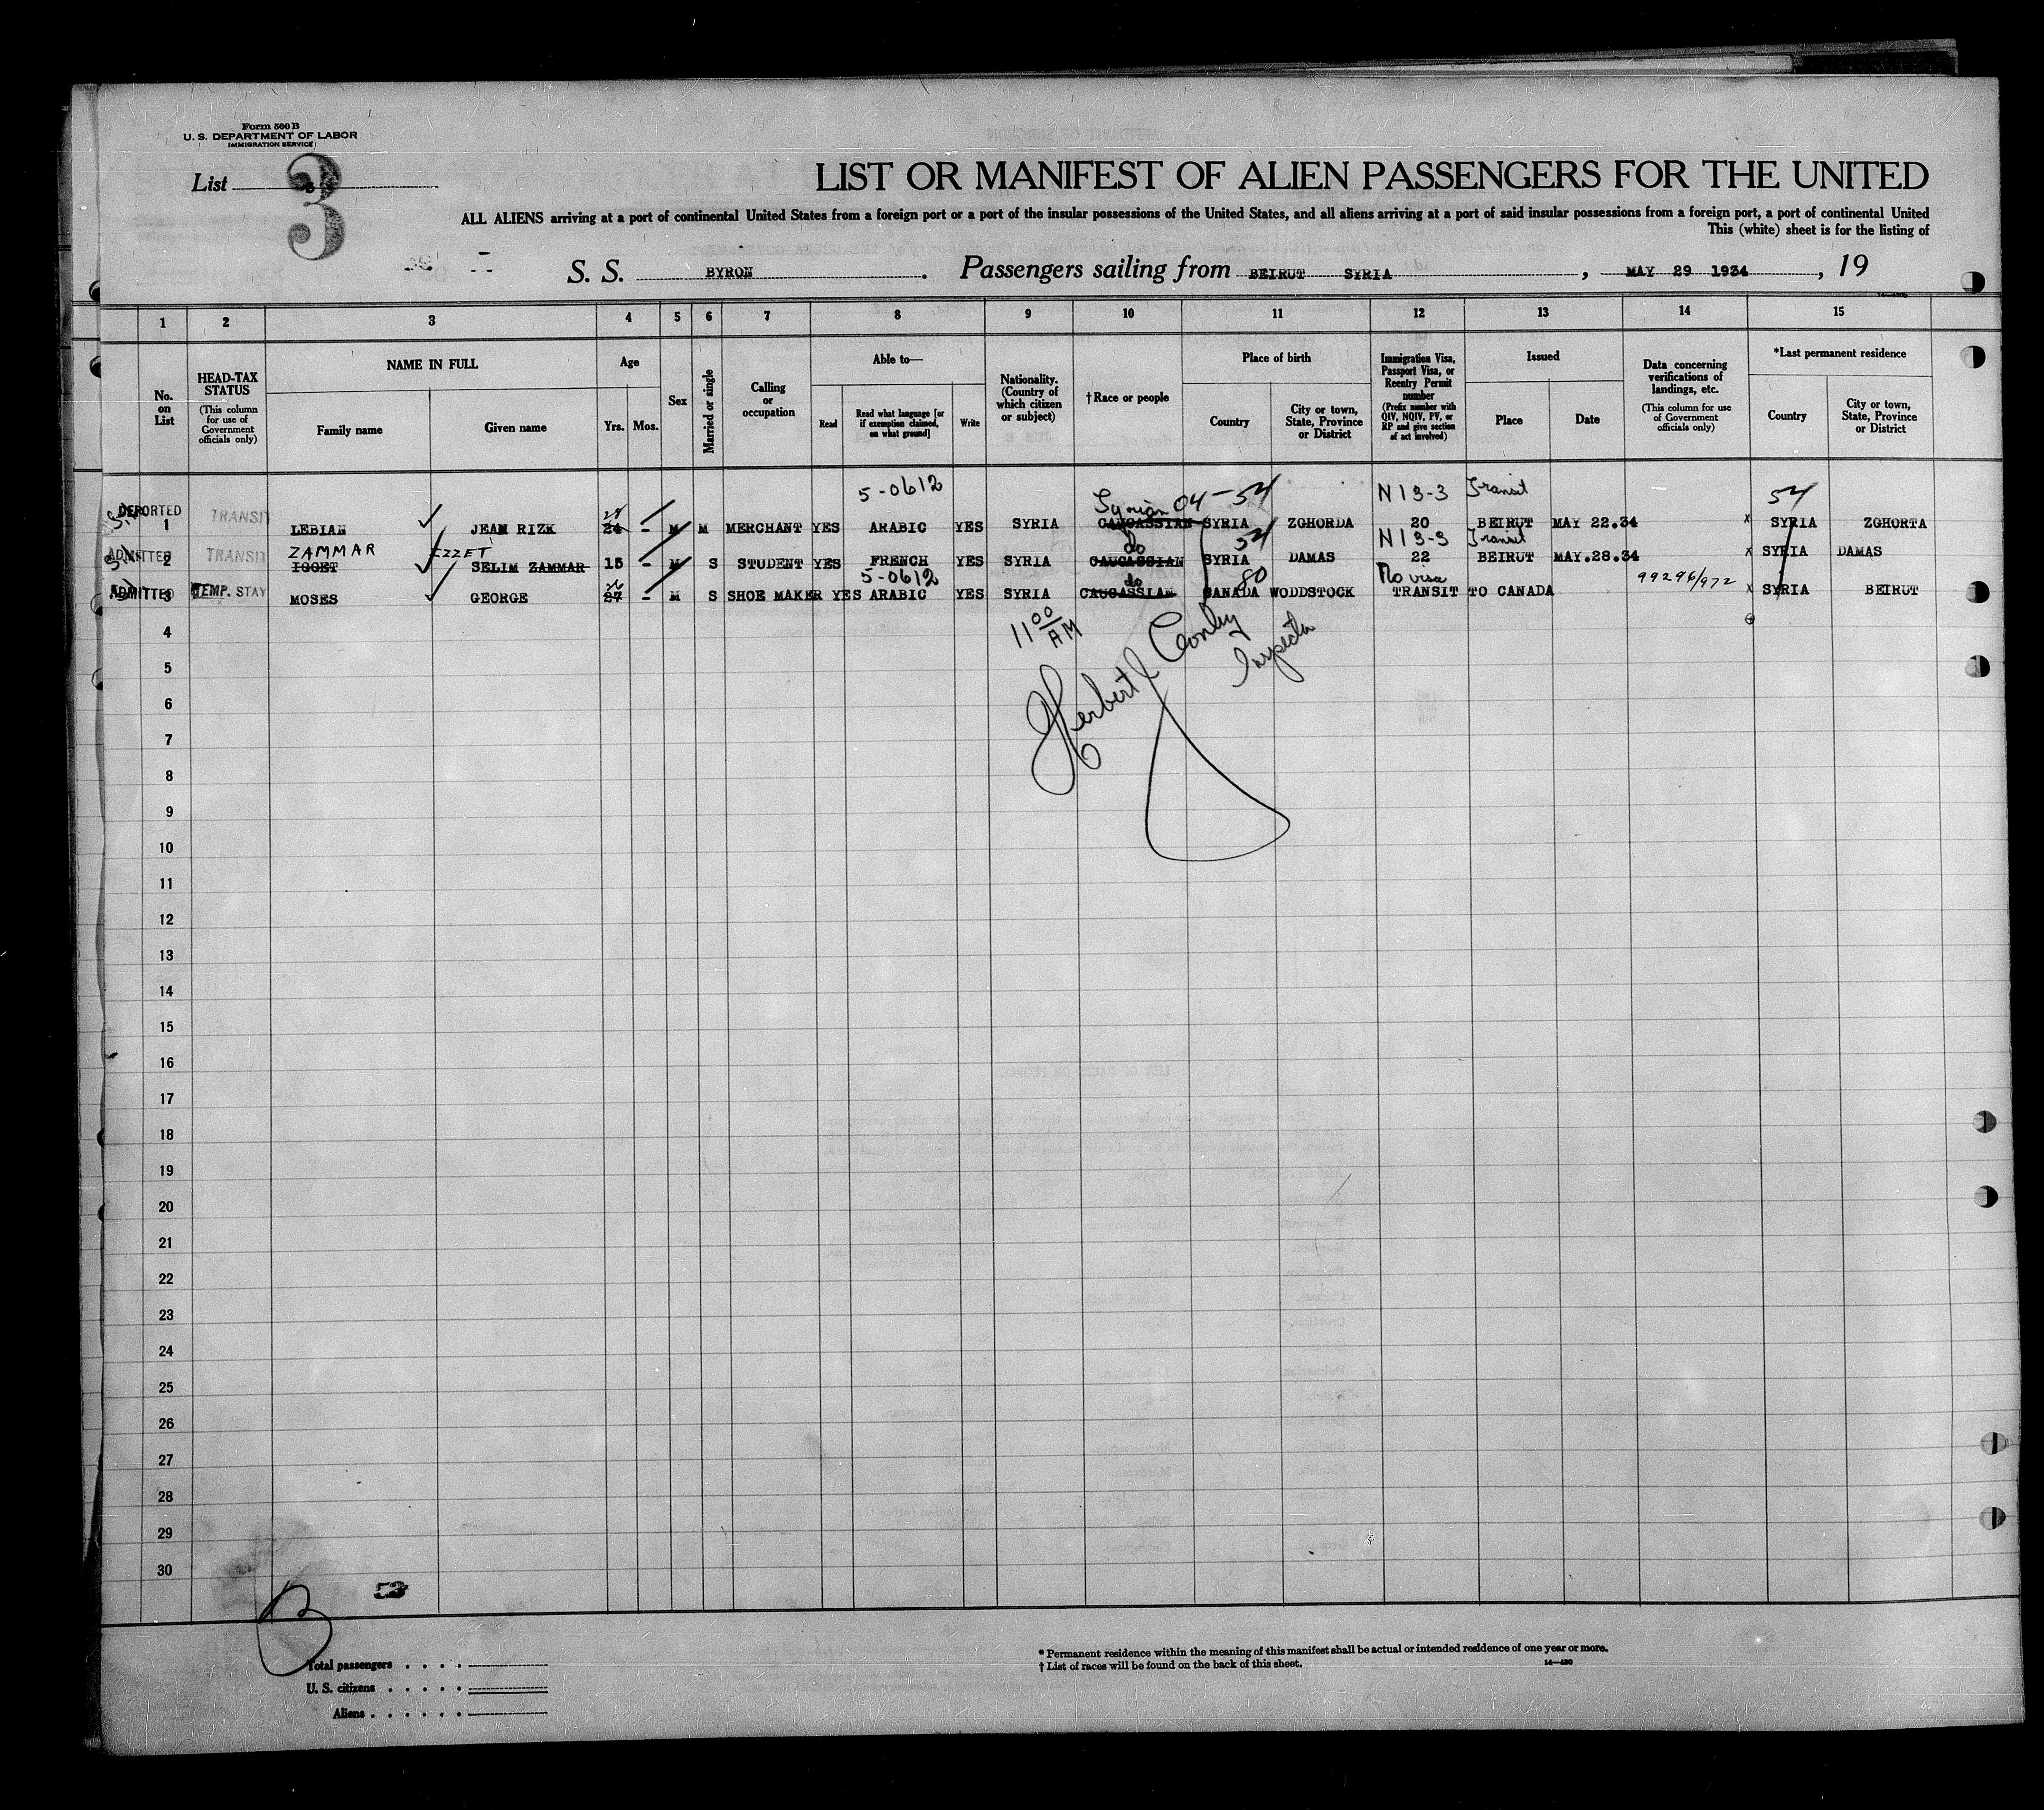 Form 500 B
U. S. DEPARTMENT OF LABOR
IMMIGRATION SERVICE
List 3
3
LIST OR MANIFEST OF ALIEN PASSENGERS FOR THE UNITED
ALL ALIENS arriving at a port of continental United States from a foreign port or a port of the insular possessions of the United States, and all aliens arriving at a port of said insular possessions from a foreign port, a port of continental United
This (white) sheet is for the listing of
S. S. BYRON. Passengers sailing from BEIRUT SYRIA, MAY 29 1934, 19
1 2 3 4 5 6 7 8 9 10 11 12 13 14 15
No. on List
HEAD-TAX STATUS (This column for use of Government officials only)
NAME IN FULL
Family name Given name
Age
Yrs. Mos.
Sex
Married or single
Calling or occupation
Able to—
Read Read what language [or if exemption claimed, on what ground] Write
Nationality. (Country of which citizen or subject)
†Race or people
Place of birth
Country City or town, State, Province or District
Immigration Visa, Passport Visa, or Reentry Permit number (Prefix number with QIV, NQIV, PV, or RP and give section of act involved)
Issued
Place Date
Data concerning verifications of landings, etc. (This column for use of Government officials only)
*Last permanent residence
Country City or town, State, Province or District
5-0612 Syrian 04-54 N I 3-3 Transit 54
DEPORTED 1 TRANSIT LEBIAN JEAN RIZK 24 - M M MERCHANT YES ARABIC YES SYRIA CAUCASSIAN SYRIA ZGHORDA 20 BEIRUT MAY 22.34 x SYRIA ZGHORTA
ZAMMAR EZZET do 54 N I 3-3 Transit
ADMITTED 2 TRANSIT IGGET SELIM ZAMMAR 15 - M S STUDENT YES FRENCH YES SYRIA CAUCASSIAN SYRIA DAMAS 22 BEIRUT MAY.28.34 x SYRIA DAMAS
26 5-0612 do 80 No visa 99296/972
ADMITTED 3 TEMP. STAY MOSES GEORGE 27 - M S SHOE MAKER YES ARABIC YES SYRIA CAUCASSIAN CANADA WODDSTOCK TRANSIT TO CANADA x SYRIA BEIRUT
11 00 AM
Herbert J Conby
Inspector
4
5
6
7
8
9
10
11
12
13
14
15
16
17
18
19
20
21
22
23
24
25
26
27
28
29
30
53
B
Total passengers . . . .
U. S. citizens . . . . .
Aliens . . . . . .
* Permanent residence within the meaning of this manifest shall be actual or intended residence of one year or more.
† List of races will be found on the back of this sheet.
14—480